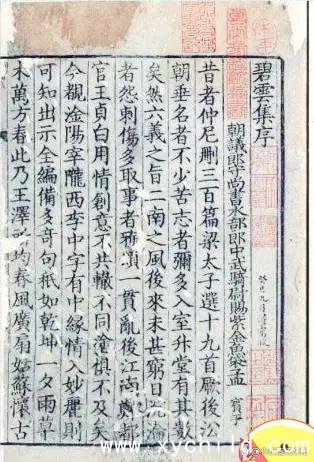 碧雲集序
朝議郎守尚書水部郎中武騎尉賜紫金魚袋孟賓
昔者仲尼刪三百篇梁太子選十九首厥後㳂
朝垂名者不少苦志者彌多入室升堂有其數
矣然六義之旨二南之風後來未甚窮日淪
者怨刺傷多取事者雅頌一貫亂後江南都
官王貞白用情創意不共轍不同塗俱不及矣
今覩淦陽宰隴西李中字有中緣情入妙麗則
可知出示全編備多奇句秖如乾坤一夕雨草
木萬方春此乃王澤所均春風廣扇姑蘇懷古
www.xychild.com